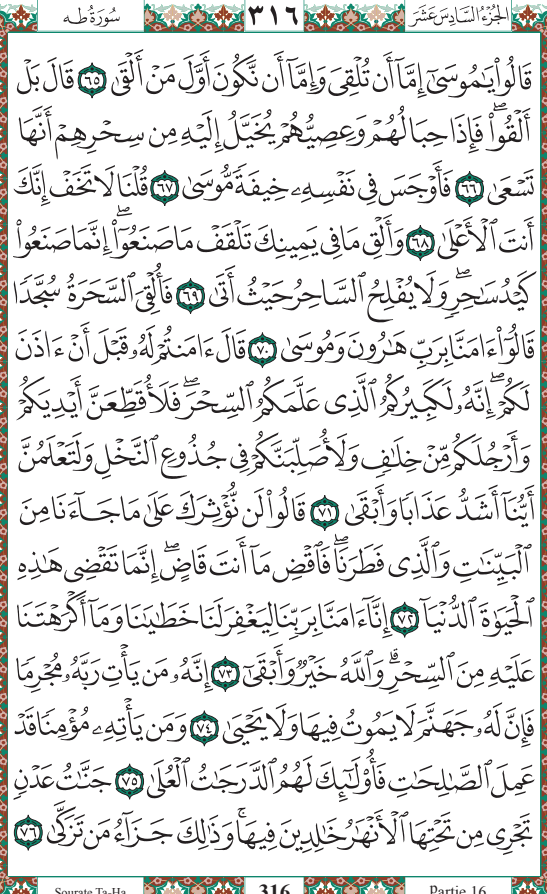 الجُزْءُ السَّادِسَ عَشَرَ ٣١٦ سُورَةُ طه
قَالُوا۟ يَـٰمُوسَىٰٓ إِمَّآ أَن تُلْقِىَ وَإِمَّآ أَن نَّكُونَ أَوَّلَ مَنْ أَلْقَىٰ ٦٥ قَالَ بَلْ
أَلْقُوا۟ۖ فَإِذَا حِبَالُهُمْ وَعِصِيُّهُمْ يُخَيَّلُ إِلَيْهِ مِن سِحْرِهِمْ أَنَّهَا
تَسْعَىٰ ٦٦ فَأَوْجَسَ فِى نَفْسِهِۦ خِيفَةً مُّوسَىٰ ٦٧ قُلْنَا لَا تَخَفْ إِنَّكَ
أَنتَ ٱلْأَعْلَىٰ ٦٨ وَأَلْقِ مَا فِى يَمِينِكَ تَلْقَفْ مَا صَنَعُوٓا۟ۖ إِنَّمَا صَنَعُوا۟
كَيْدُ سَـٰحِرٍۖ وَلَا يُفْلِحُ ٱلسَّاحِرُ حَيْثُ أَتَىٰ ٦٩ فَأُلْقِىَ ٱلسَّحَرَةُ سُجَّدًا
قَالُوٓا۟ ءَامَنَّا بِرَبِّ هَـٰرُونَ وَمُوسَىٰ ٧٠ قَالَ ءَامَنتُمْ لَهُۥ قَبْلَ أَنْ ءَاذَنَ
لَكُمْۖ إِنَّهُۥ لَكَبِيرُكُمُ ٱلَّذِى عَلَّمَكُمُ ٱلسِّحْرَۖ فَلَأُقَطِّعَنَّ أَيْدِيَكُمْ
وَأَرْجُلَكُم مِّنْ خِلَـٰفٍ وَلَأُصَلِّبَنَّكُمْ فِى جُذُوعِ ٱلنَّخْلِ وَلَتَعْلَمُنَّ
أَيُّنَآ أَشَدُّ عَذَابًا وَأَبْقَىٰ ٧١ قَالُوا۟ لَن نُّؤْثِرَكَ عَلَىٰ مَا جَآءَنَا مِنَ
ٱلْبَيِّنَـٰتِ وَٱلَّذِى فَطَرَنَاۖ فَٱقْضِ مَآ أَنتَ قَاضٍۖ إِنَّمَا تَقْضِى هَـٰذِهِ
ٱلْحَيَوٰةَ ٱلدُّنْيَآ ٧٢ إِنَّآ ءَامَنَّا بِرَبِّنَا لِيَغْفِرَ لَنَا خَطَـٰيَـٰنَا وَمَآ أَكْرَهْتَنَا
عَلَيْهِ مِنَ ٱلسِّحْرِۗ وَٱللَّهُ خَيْرٌ وَأَبْقَىٰٓ ٧٣ إِنَّهُۥ مَن يَأْتِ رَبَّهُۥ مُجْرِمًا
فَإِنَّ لَهُۥ جَهَنَّمَ لَا يَمُوتُ فِيهَا وَلَا يَحْيَىٰ ٧٤ وَمَن يَأْتِهِۦ مُؤْمِنًا قَدْ
عَمِلَ ٱلصَّـٰلِحَـٰتِ فَأُو۟لَـٰٓئِكَ لَهُمُ ٱلدَّرَجَـٰتُ ٱلْعُلَىٰ ٧٥ جَنَّـٰتُ عَدْنٍ
تَجْرِى مِن تَحْتِهَا ٱلْأَنْهَـٰرُ خَـٰلِدِينَ فِيهَاۚ وَذَٰلِكَ جَزَآءُ مَن تَزَكَّىٰ ٧٦
Sourate Ta-Ha 316 Partie 16